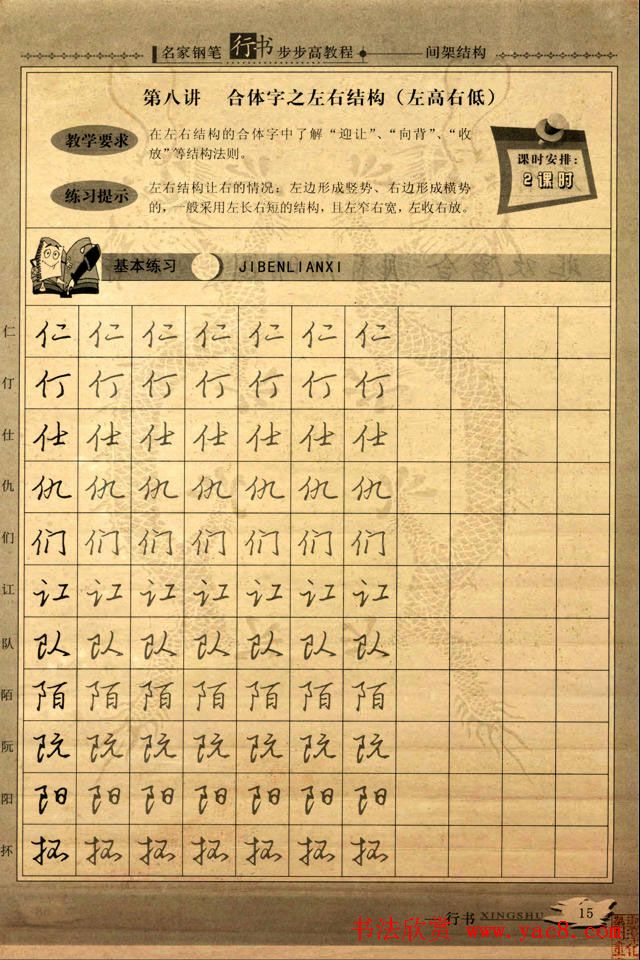 名家钢笔行书步步高教程 间架结构
第八讲 合体字之左右结构（左高右低）
教学要求
在左右结构的合体字中了解“迎让”、“向背”、“收
放”等结构法则。
练习提示
左右结构让右的情况：左边形成竖势、右边形成横势
的，一般采用左长右短的结构，且左窄右宽，左收右放。
课时安排：
2课时
基本练习 JIBENLIANXI
仁 仁 仁 仁 仁 仁 仁 仁
仃 仃 仃 仃 仃 仃 仃 仃
仕 仕 仕 仕 仕 仕 仕 仕
仇 仇 仇 仇 仇 仇 仇 仇
们 们 们 们 们 们 们 们
讧 讧 讧 讧 讧 讧 讧 讧
队 队 队 队 队 队 队 队
陌 陌 陌 陌 陌 陌 陌 陌
阮 阮 阮 阮 阮 阮 阮 阮
阳 阳 阳 阳 阳 阳 阳 阳
行书 XINGSHU 15
书法欣赏 www.yac8.com